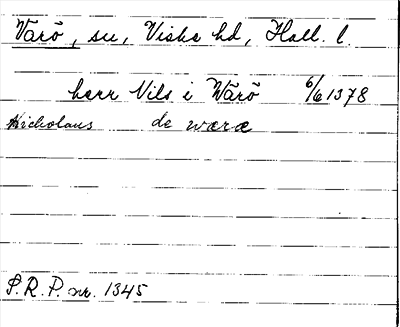 Värö, sn, Viske hd, Hall. l.
herr Nils i Wärö 6/6 1378
Nicholaus de wæræ
S.R.P. nr. 1345